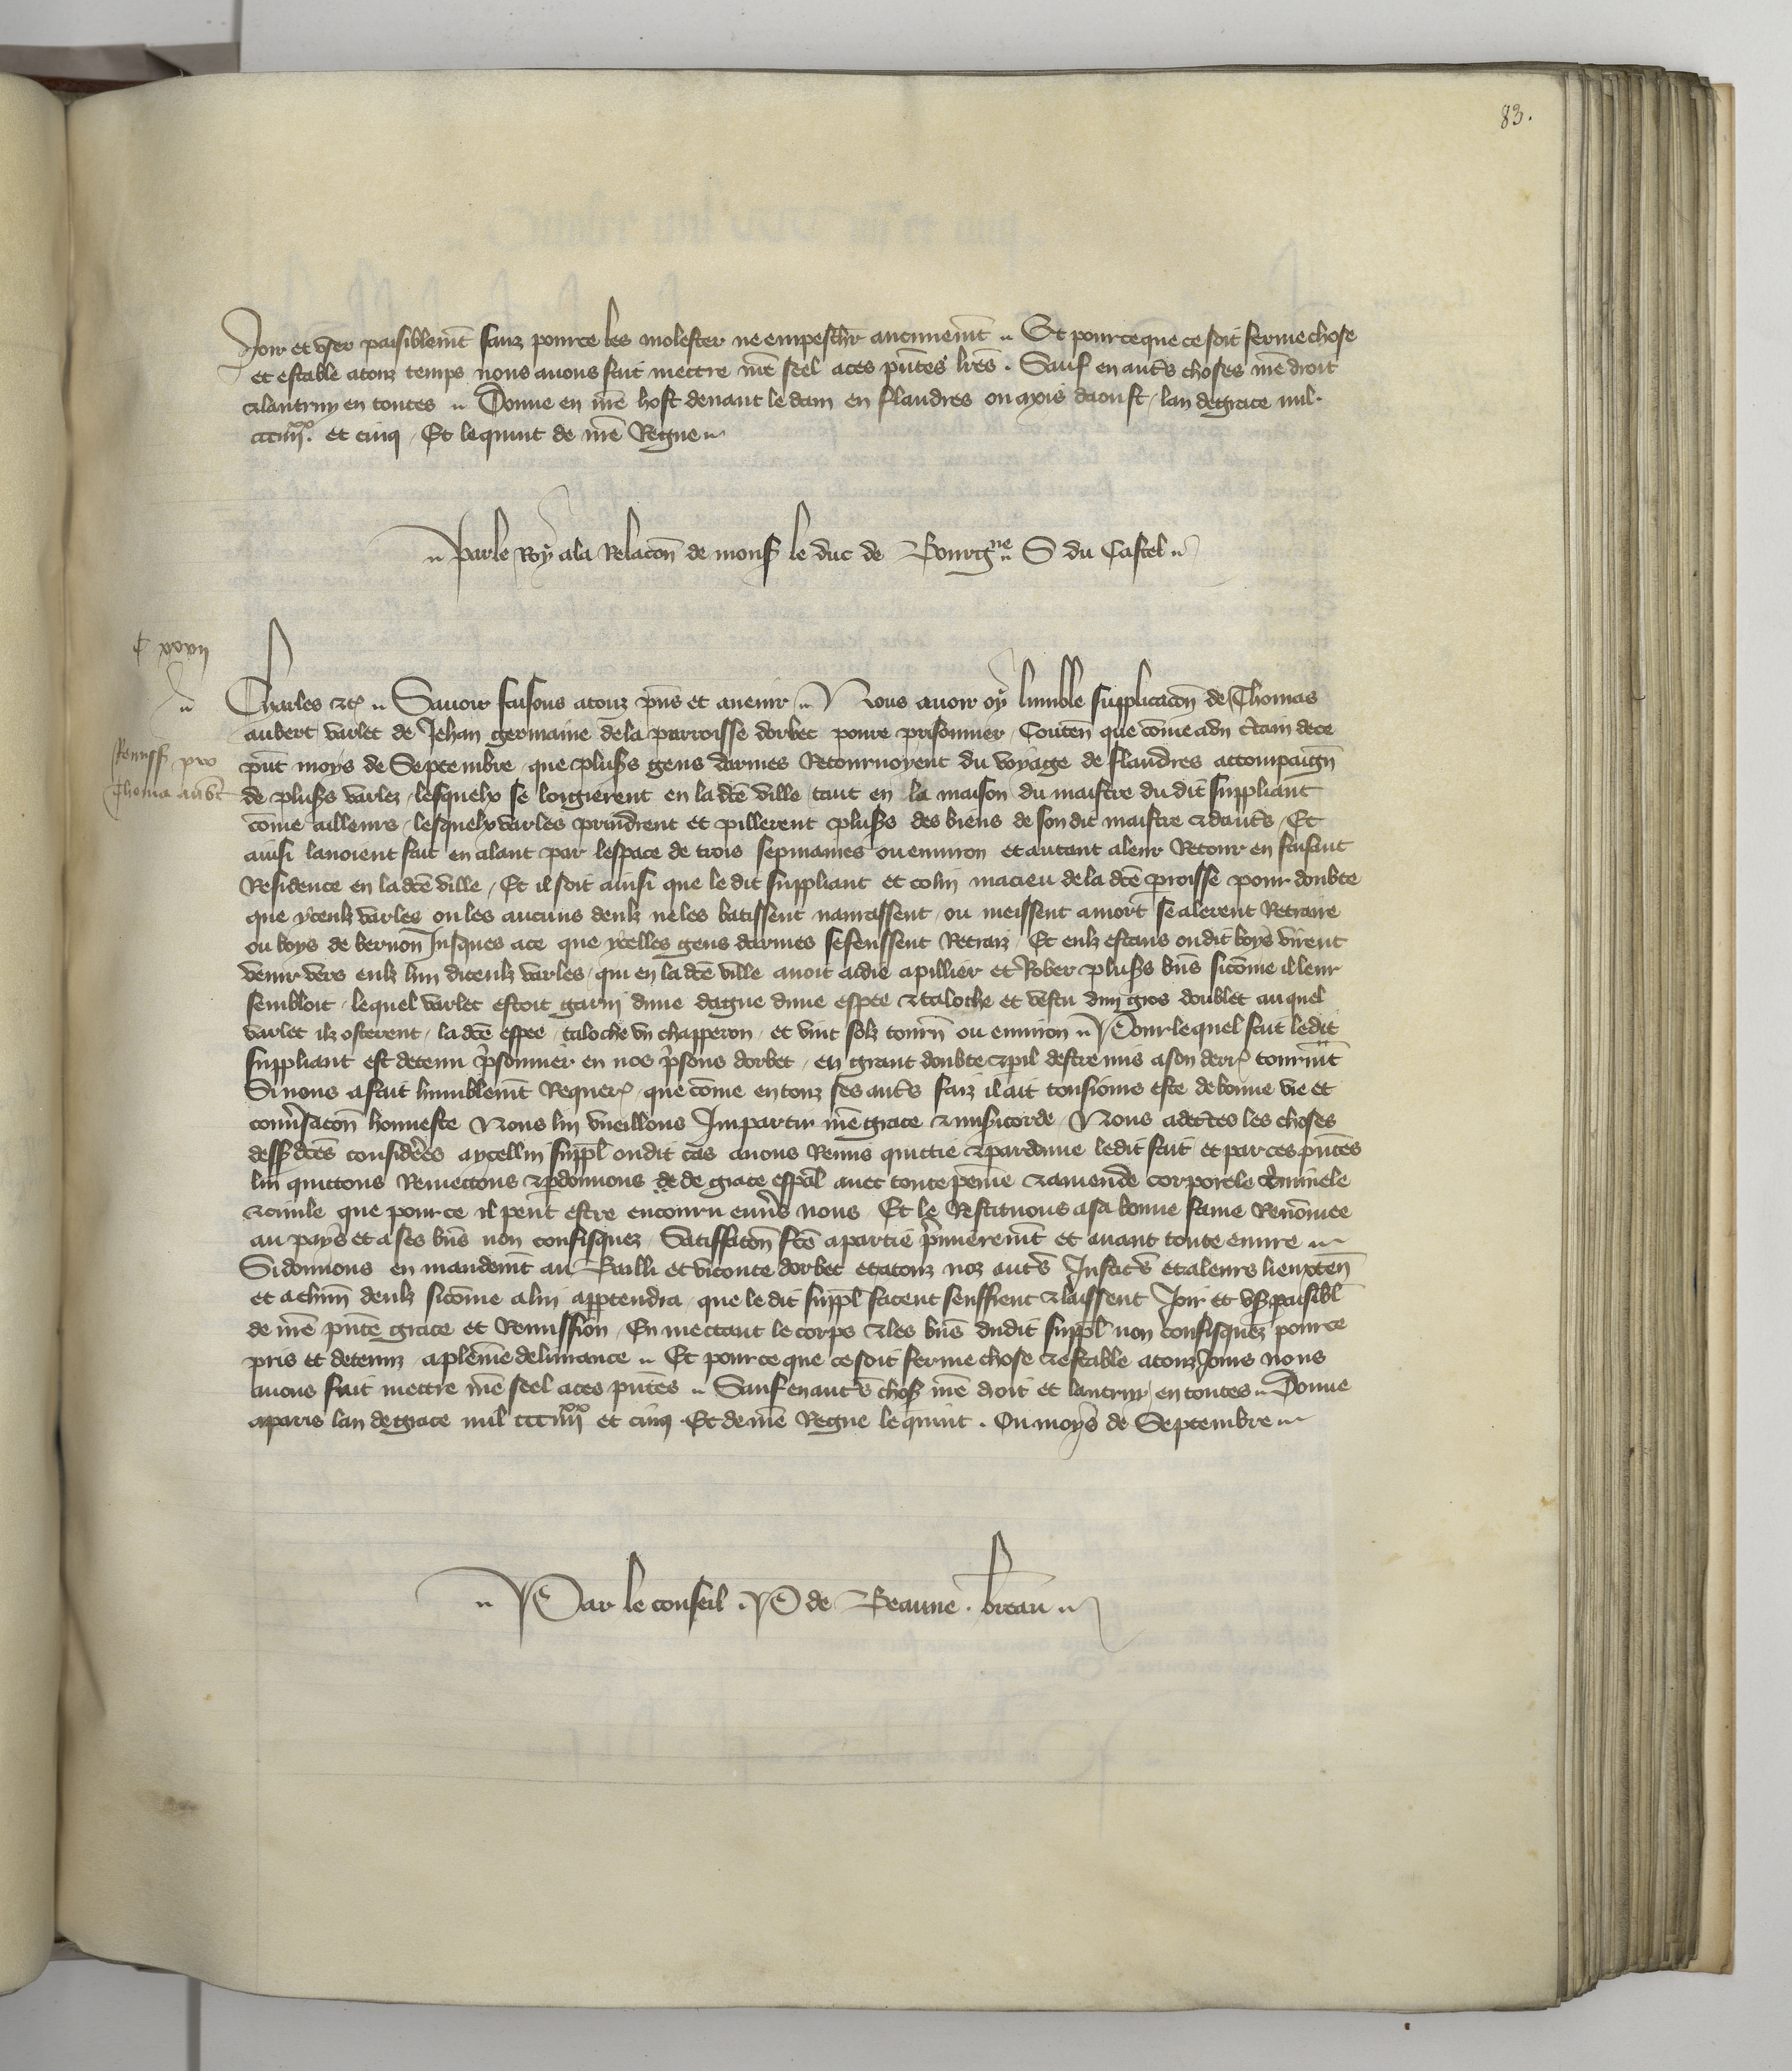 83.
Joir et user paisiblemt sanz pource les molester ne empeschr aucunemt .. Et pource que ce soit ferme chose
et estable a touz temps nous avons fait mettre nre seel a ces pntes lres . Sauf en autrs choses nre droit
& lautruy en toutes .. Donne en nre host devant le dam en flandres ou mois daoust / lan de grace mil.
ccc iiiixx. et cinq / Et le quint de nre Regne ..
.. Par le Roy a la Relacon de mons le duc de Bourgne .. S du Castel ..
C xxvii
Charles &c .. Savoir faisons a touz pns et avenir .. Nous avoir oy lumble supplicacon de Thomas
aubert varlet de Jehan germaine de la parroisse dorbec povre prisonnier / Conten que come a un crtain de ce
Remiss pro
Thoma aubt
pnt moys de Septembre / que pluss gens darmes Retournoyent du voyage de flandres accompaign
de pluss varlez / lesquelx se logierent en la dce ville / tant en la maison du maistre du dit suppliant
come ailleurs / lesquelx varles prindrent et pillerent pluss des biens de son dit maistre & dautrs / Et
ainsi lavoient fait en alant par lespace de trois sepmaines ou environ et autant a leur Retour en faisant
Residence en la dce ville / Et il soit ainsi que le dit suppliant et colin macieu de la dce proisse pour doubte
que yceulx varles ou les aucuns deulx ne les batissent navrassent / ou meissent a mort se alerent Retraire
ou boys de bernon Jusques a ce que ycelles gens darmes se feussent Retraiz / Et eulx estans ou dit boys virent
venir vers eulx lun diceulx varles / qui en la dce ville avoit aidie a pillier et Rober pluss bns sicome il leur
sembloit / lequel varlet estoit garni dune dague dune espee & taloche et vestu dun gros doublet auquel
varlet ilz osterent / la dce espee / taloche un chapperon / et vint solz tourn ou environ .. Pour lequel fait le dit
suppliant est detenu prsonnier en nos prsons dorbec / en grant doubte & pil destre mis a son derr tourmt
Si nous a fait humblemt Requer / que come en touz ses autrs faiz il ait tousiours este de bonne vie et
convrsacon honneste Nous lui vueillons Impartir nre grace & misicorde / Nous adcrtes les choses
dess dces considerees a ycellui suppl ou dit cas avons Remis quittie & pardonne le dit fait et par ces pntes
lui quittons Remettons & pdonnons de de grace espal avec toute peine & amende corporele criminele
& civile que pour ce il peut estre encouru envrs nous / Et le Restituons a sa bonne fame Renomee
au pays et a ses bns non confisquez / Satisfacon fce a partie primieremt et avant toute euvre ..
Si donnons en mandemt au Bailli et viconte dorbec et a touz noz autrs Justics et a leurs lieuxten
et a chun deulx sicome a lui apptendra / que le dit suppl facent seuffrent & laissent Joir et us paisibl
de nre pnte grace et Remission / En mettant le corps & les bns du dit suppl non confisquez pour ce
pris et detenuz a pleine delivrance .. Et pour ce que ce soit ferme chose & estable a touz Jours nous
avons fait mettre nre seel a ces pntes .. Sauf en autrs chos nre droit et lautruy en toutes .. Donne
a paris lan de grace mil ccc iiiixx et cinq . Et de nre Regne le quint . Ou moys de Septembre ..
.. Par le conseil . P de Beaune . breau ..